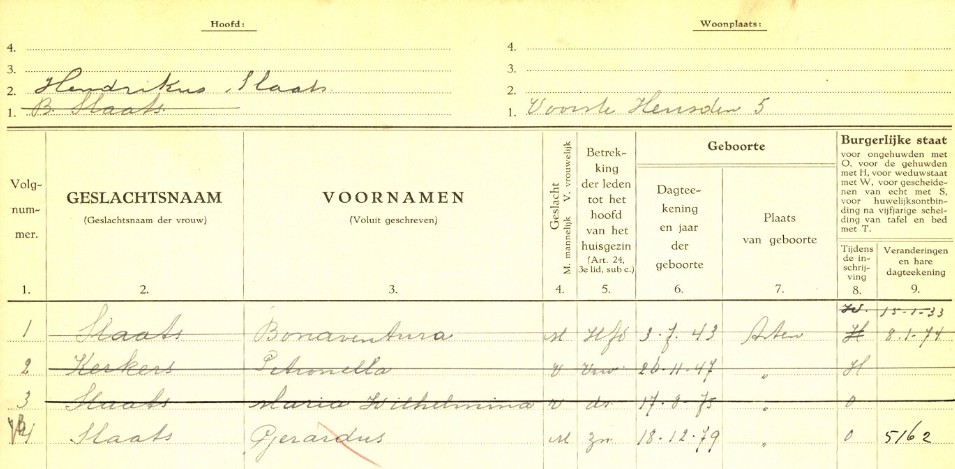 Hoofd: Woonplaats:
4. 4.
3. 3.
2. Hendrikus Slaats 2.
1. B. Slaats 1. Voorste Heusden 5
Volg-
num-
mer.
GESLACHTSNAAM
(Geslachtsnaam der vrouw)
VOORNAMEN
(Voluit geschreven)
Geslacht
M. mannelijk V. vrouwelijk
Betrek-
king
der leden
tot het
hoofd
van het
huisgezin
(Art. 24,
3e lid, sub c.)
Geboorte
Dagtee-
kening
en jaar
der
geboorte
Plaats
van geboorte
Burgerlijke staat
voor ongehuwden met
O, voor de gehuwden
met H, voor weduwstaat
met W, voor gescheide-
nen van echt met S,
voor huwelijksontbin-
ding na vijfjarige schei-
ding van tafel en bed
met T.
Tijdens
de in-
schrij-
ving
Veranderingen
en hare
dagteekening
1. 2. 3. 4. 5. 6. 7. 8. 9.
W. 15-1-33
1 Slaats Bonaventura M Hfd 3-7-43 Asten H 8-1-74
2 Kerkers Petronella V Vrw 26-11-47 " H
3 Slaats Maria Wilhelmina V dr 17-8-75 " O
4 Slaats Gjerardus M zn 18-12-79 " O 5162